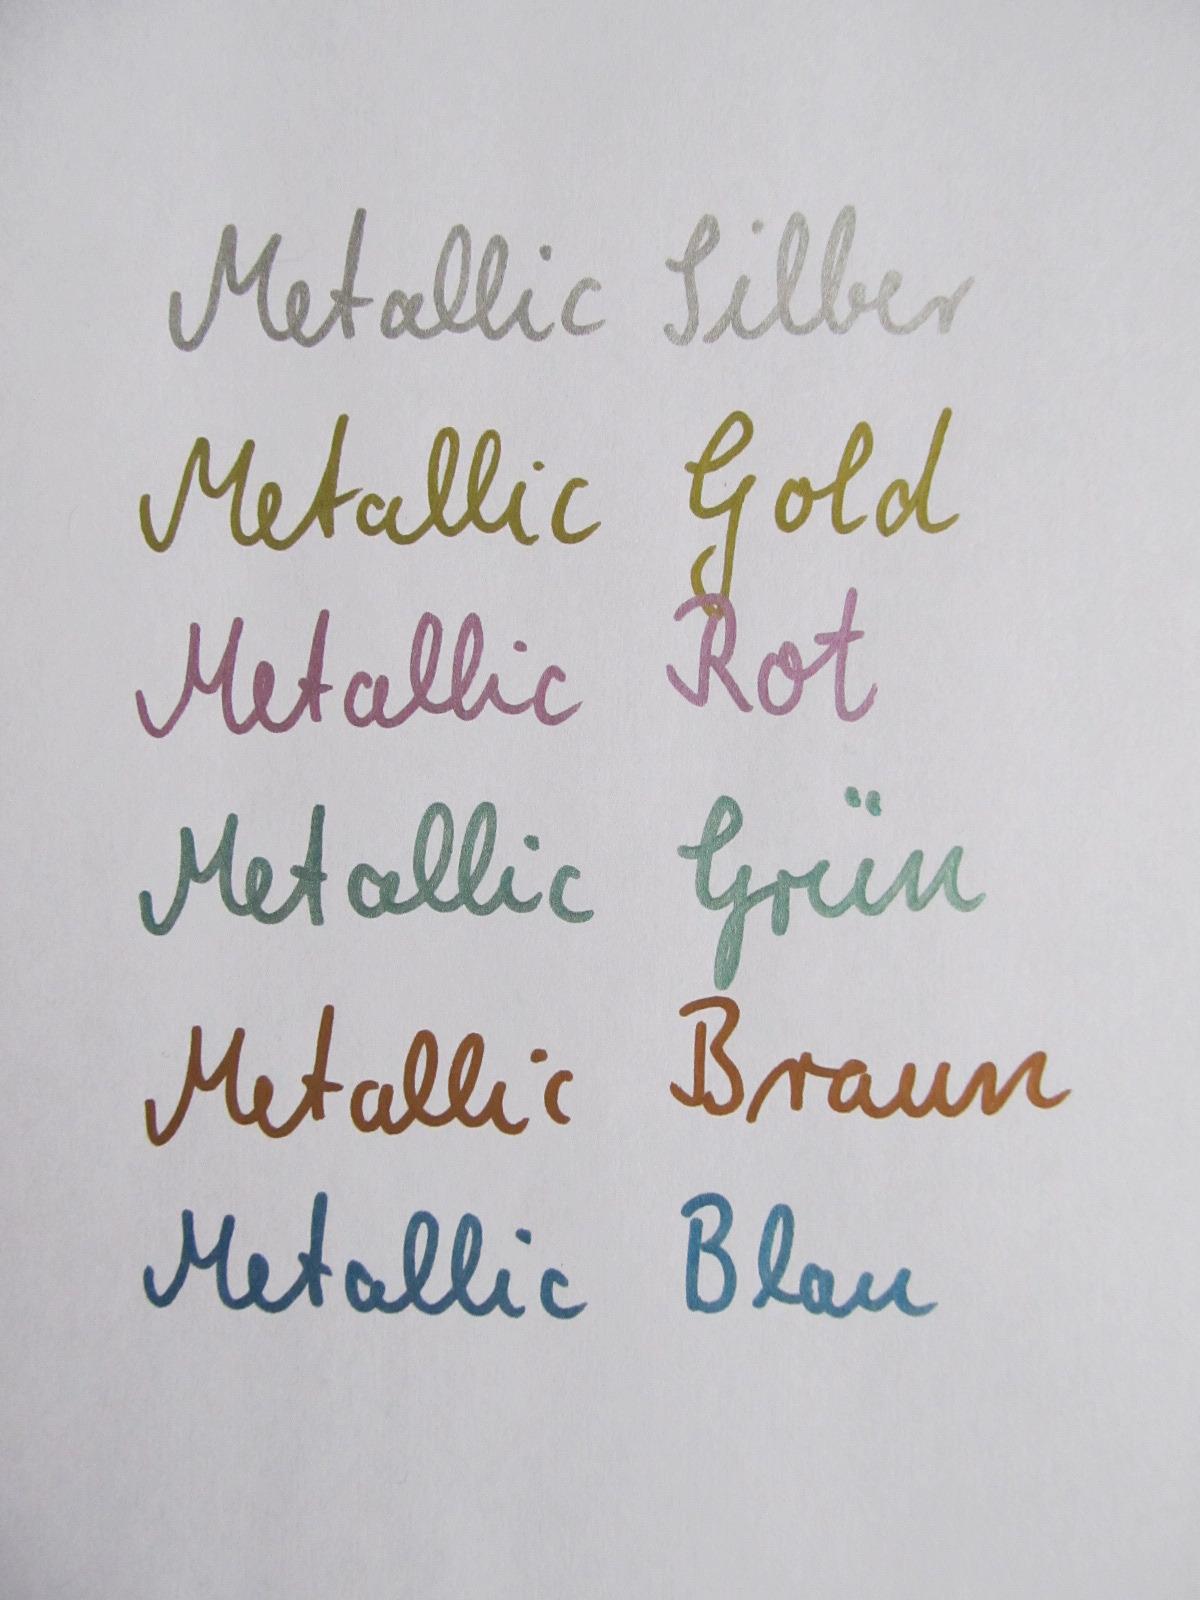 Metallic Silber
Metallic Gold
Metallic Rot
Metallic Grün
Metallic Braun
Metallic Blau